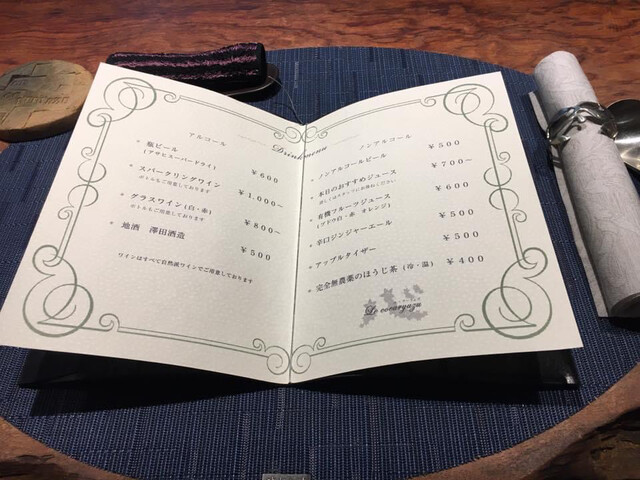 Drink menu
アルコール
* 瓶ビール ￥600
(アサヒスーパードライ)
* スパークリングワイン ￥1,000～
ボトルもご用意しております
* グラスワイン (白・赤) ￥800～
ボトルもご用意しております
* 地酒 澤田酒造 ￥500
ワインはすべて自然派ワインでご用意しております
ノンアルコール
* ノンアルコールビール ￥500
* 本日のおすすめジュース ￥700～
詳しくはスタッフにお尋ねください
* 有機フルーツジュース ￥600
(ブドウ白・赤 オレンジ)
* 辛口ジンジャーエール ￥500
* アップルタイザー ￥500
* 完全無農薬のほうじ茶 (冷・温) ￥400